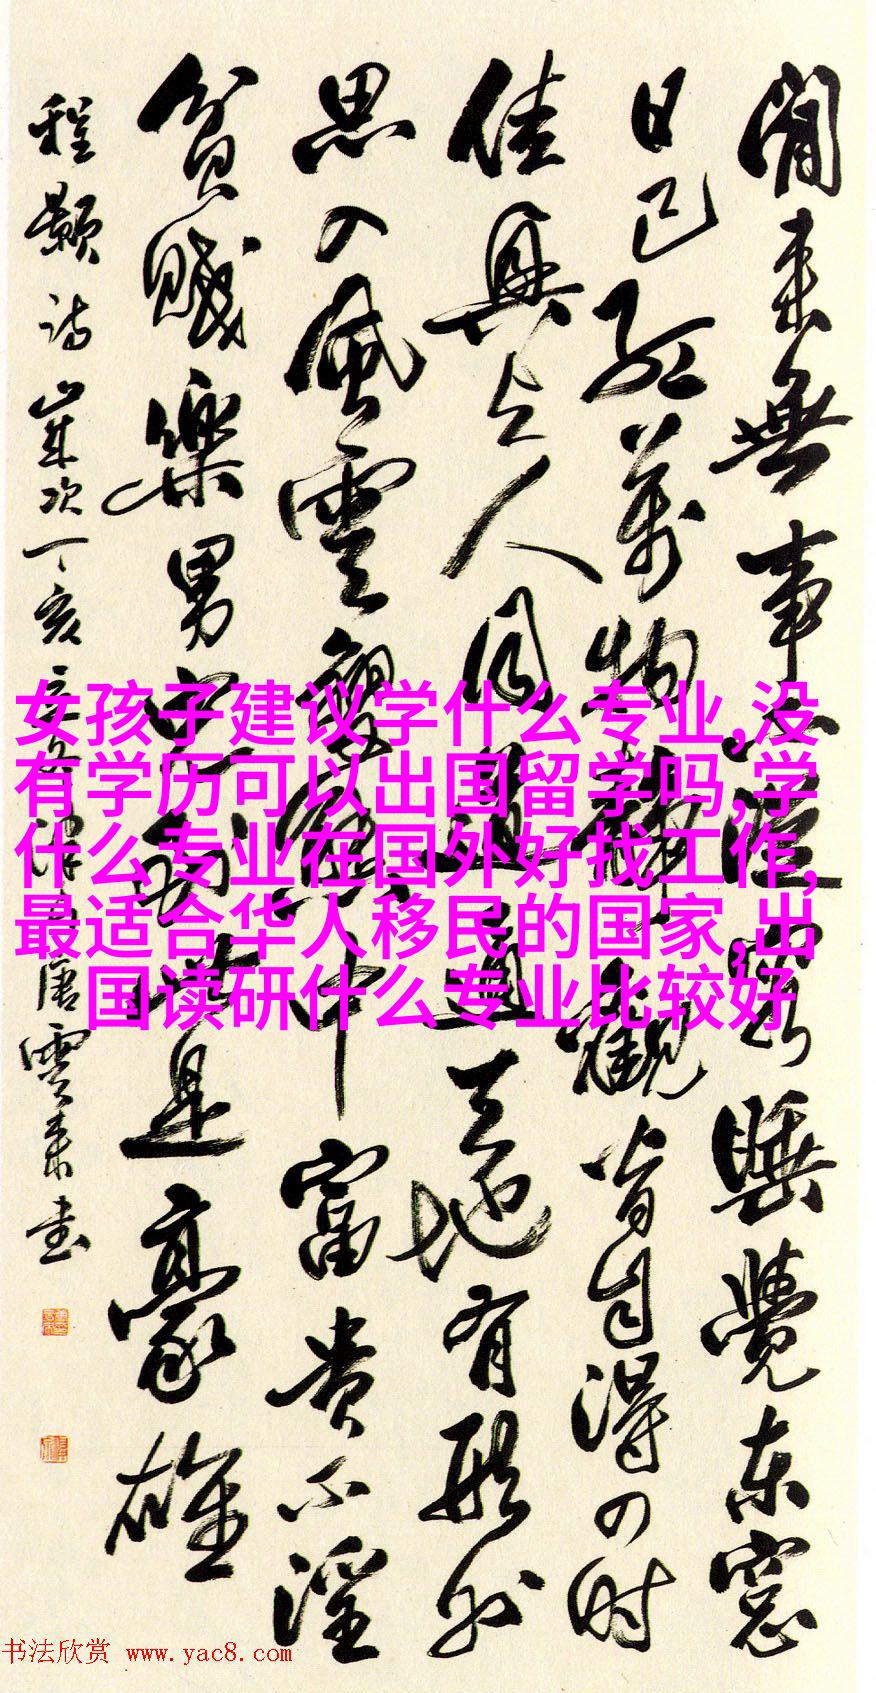 閒来無事不從容睡覺东窓
日已红萬物静觀皆自得四时
佳興与人同道通天地有形外
思入風雲變態中富贵不淫
貧賤樂男兒到此是豪雄
程颢诗岁次丁亥唐雲来书
女孩子建议学什么专业,没
有学历可以出国留学吗,学
什么专业在国外好找工作,
最适合华人移民的国家,出
国读研什么专业比较好
书法欣赏 www.yac8.com